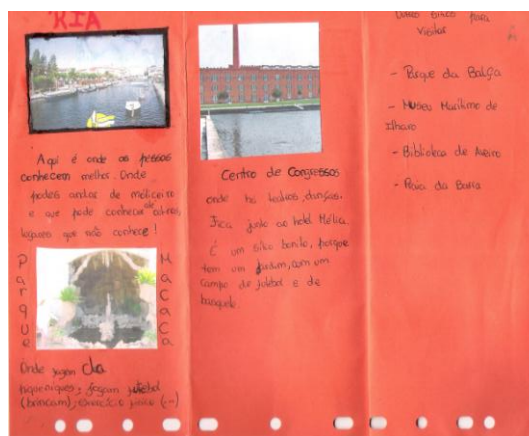 RIA
Aqui é onde as pessoas
conhecem melhor. Onde
podes andar de moliceiro
e que pode conhecer
lugares que não conhece!
Parque
da
Macaca
Onde jogam
piqueniques; jogam futebol
(brincam); exercício físico (...)
Centro de Congressos
onde há teatros, danças.
Fica junto ao hotel Mélia.
É um sítio bonito, porque
tem um jardim, com um
campo de futebol e de
basquete.
Outros sítios para
visitar
- Parque da Balça
- Museu Marítimo de
Ílhavo
- Biblioteca de Aveiro
- Praia da Barra